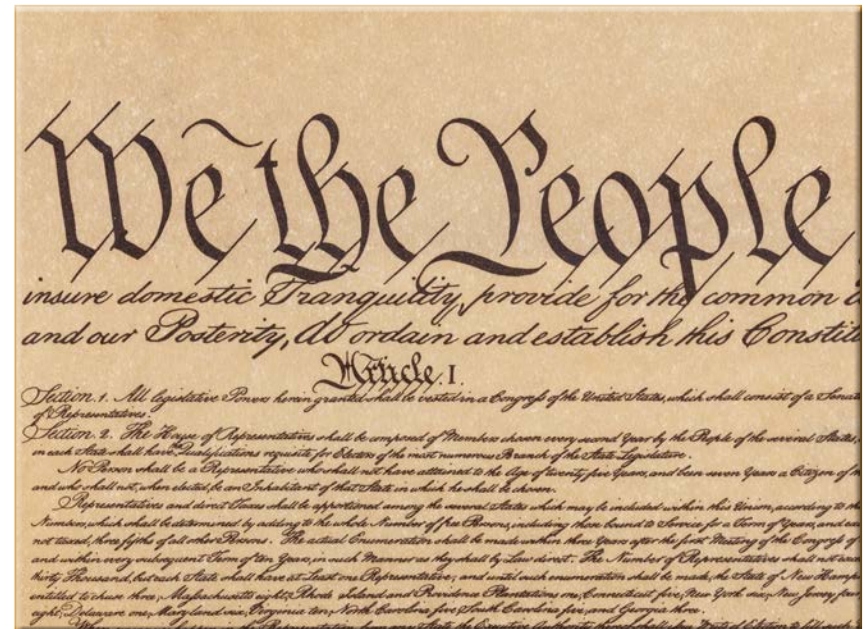 We the People
insure domestic Tranquility, provide for the common
and our Posterity, do ordain and establish this Constitu
Article. I.
Section. 1. All legislative Powers herein granted shall be vested in a Congress of the United States, which shall consist of a Senate
of Representatives.
Section. 2. The House of Representatives shall be composed of Members chosen every second Year by the People of the several States,
in each State shall have the Qualifications requisite for Electors of the most numerous Branch of the State Legislature.
No Person shall be a Representative who shall not have attained to the Age of twenty five Years, and been seven Years a Citizen of
and who shall not, when elected, be an Inhabitant of that State in which he shall be chosen.
Representatives and direct Taxes shall be apportioned among the several States which may be included within this Union, according to
Numbers, which shall be determined by adding to the whole Number of free Persons, including those bound to Service for a Term of Years, and
not taxed, three fifths of all other Persons. The actual Enumeration shall be made within three Years after the first Meeting of the Congress of
and within every subsequent Term of ten Years, in such Manner as they shall by Law direct. The Number of Representatives shall not
thirty Thousand, but each State shall have at Least one Representative; and until such enumeration shall be made, the State of New Hamp
entitled to chuse three, Massachusetts eight, Rhode Island and Providence Plantations one, Connecticut five, New York six, New Jersey four
eight, Delaware one, Maryland six, Virginia ten, North Carolina five, South Carolina five, and Georgia three.